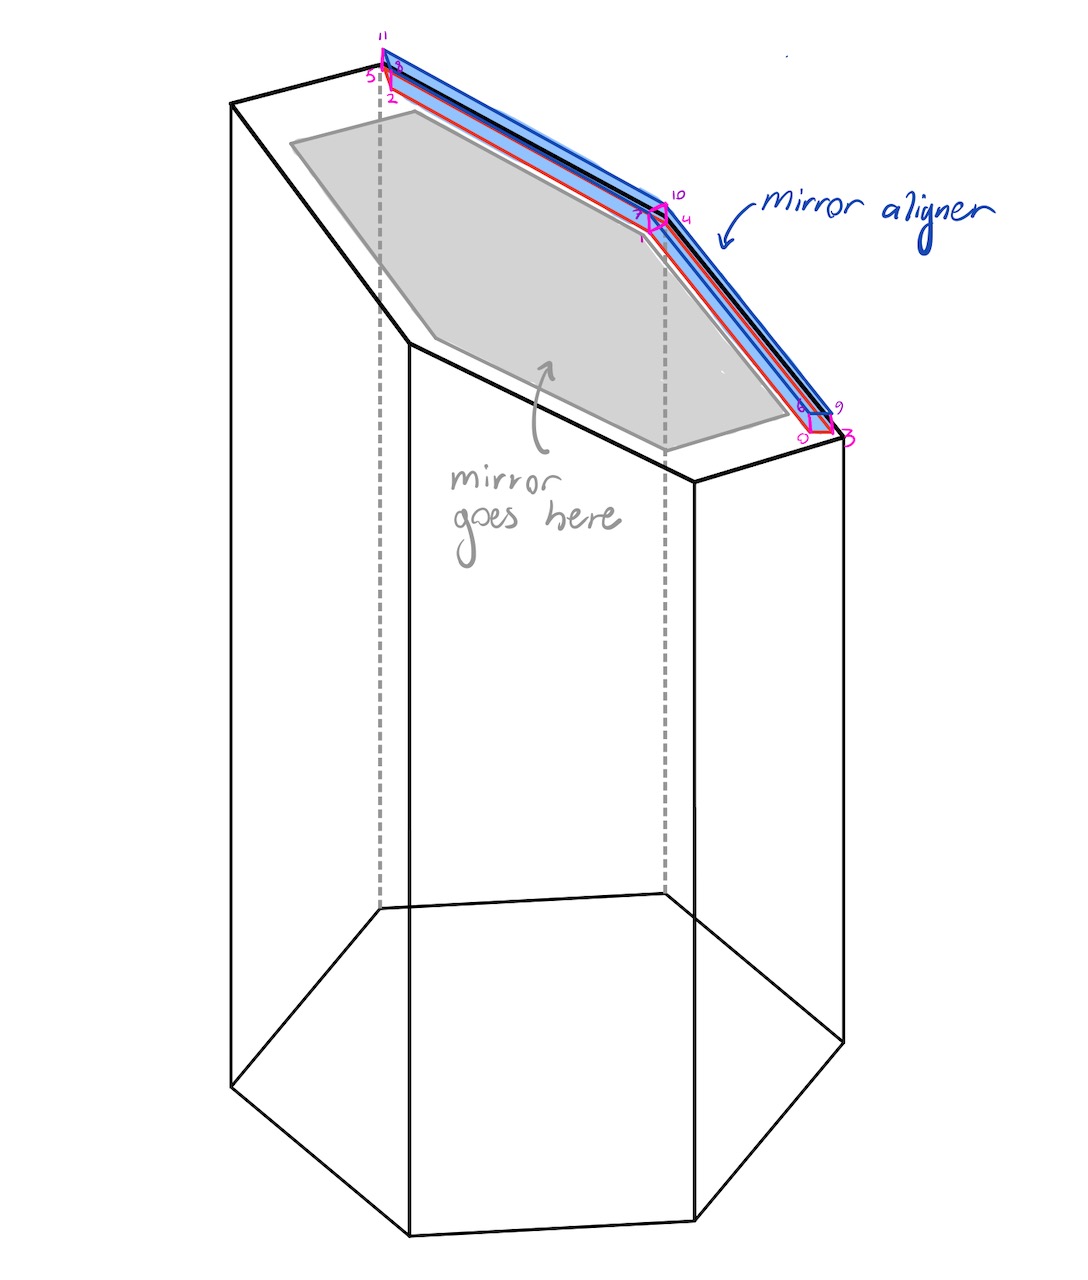 11
5 8
2
10
7 4
1
mirror aligner
6 9
0 3
mirror
goes here